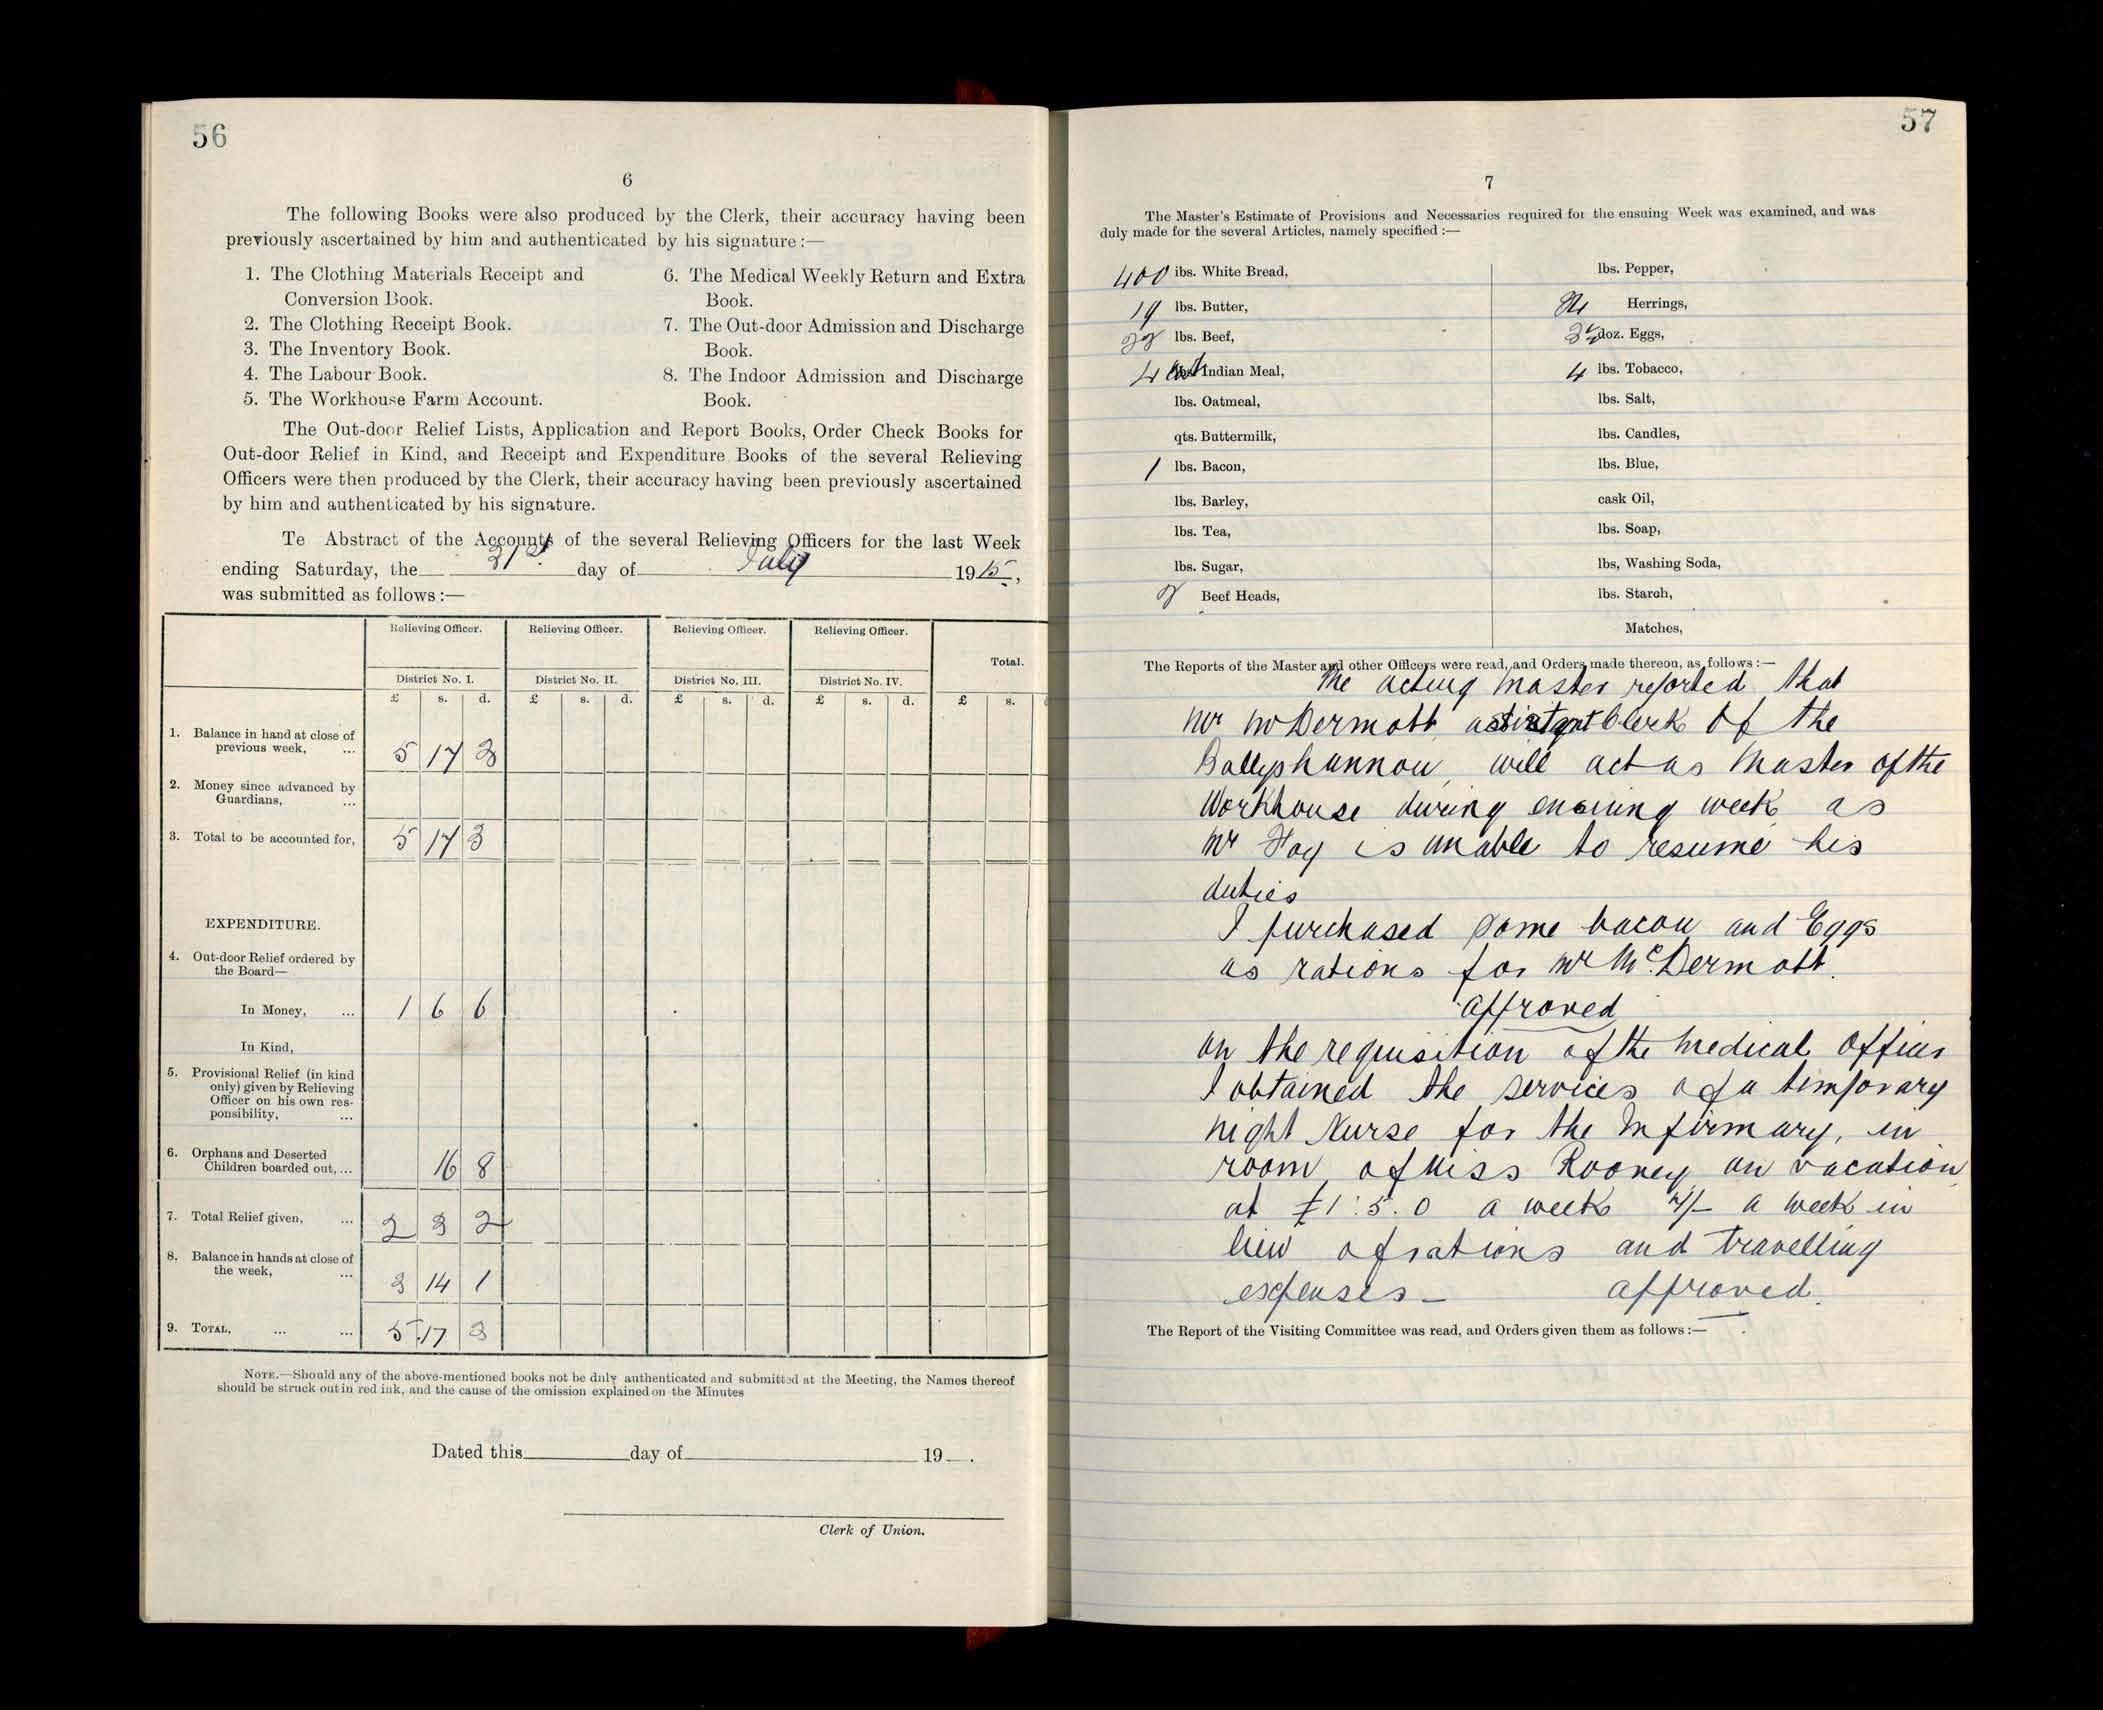 56
6
The following Books were also produced by the Clerk, their accuracy having been
previously ascertained by him and authenticated by his signature :—
1. The Clothing Materials Receipt and
Conversion Book.
2. The Clothing Receipt Book.
3. The Inventory Book.
4. The Labour Book.
5. The Workhouse Farm Account.
6. The Medical Weekly Return and Extra
Book.
7. The Out-door Admission and Discharge
Book.
8. The Indoor Admission and Discharge
Book.
The Out-door Relief Lists, Application and Report Books, Order Check Books for
Out-door Relief in Kind, and Receipt and Expenditure Books of the several Relieving
Officers were then produced by the Clerk, their accuracy having been previously ascertained
by him and authenticated by his signature.
Te Abstract of the Accounts of the several Relieving Officers for the last Week
ending Saturday, the 31st. day of July 1915,
was submitted as follows :—
Relieving Officer. Relieving Officer. Relieving Officer. Relieving Officer.
Total.
District No. I. District No. II. District No. III. District No. IV.
£ s. d. £ s. d. £ s. d. £ s. d. £ s.
1. Balance in hand at close of
previous week, ... 5 17 3
2. Money since advanced by
Guardians, ...
3. Total to be accounted for, 5 17 3
EXPENDITURE.
4. Out-door Relief ordered by
the Board—
In Money, ... 1 6 6
In Kind,
5. Provisional Relief (in kind
only) given by Relieving
Officer on his own res-
ponsibility, ...
6. Orphans and Deserted
Children boarded out, ... 16 8
7. Total Relief given, ... 2 3 2
8. Balance in hands at close of
the week, ... 3 14 1
9. TOTAL, ... ... 5 17 3
NOTE.—Should any of the above-mentioned books not be duly authenticated and submitted at the Meeting, the Names thereof
should be struck out in red ink, and the cause of the omission explained on the Minutes
Dated this day of 19 .
Clerk of Union.
57
7
The Master's Estimate of Provisions and Necessaries required for the ensuing Week was examined, and was
duly made for the several Articles, namely specified :—
400 lbs. White Bread,
19 lbs. Butter,
lbs. Beef,
4 cwt Indian Meal,
lbs. Oatmeal,
qts. Buttermilk,
1 lbs. Bacon,
lbs. Barley,
lbs. Tea,
lbs. Sugar,
2 Beef Heads,
lbs. Pepper,
Herrings,
doz. Eggs,
4 lbs. Tobacco,
lbs. Salt,
lbs. Candles,
lbs. Blue,
cask Oil,
lbs. Soap,
lbs, Washing Soda,
lbs. Starch,
Matches,
The Reports of the Master and other Officers were read, and Orders made thereon, as follows :—
The acting Master reported that
Mr McDermott assistant Clerk of the
Ballyshannon will act as Master of the
Workhouse during ensuing week as
Mr Foy is unable to resume his
duties
I purchased some bacon and Eggs
as rations for Mr McDermott.
approved
on the requisition of the Medical Officer
I obtained the services of a temporary
night Nurse for the Infirmary, in
room of Miss Rooney on vacation
at £1:5.0 a week /- a week in
lieu of rations and travelling
expenses — approved.
The Report of the Visiting Committee was read, and Orders given them as follows :—